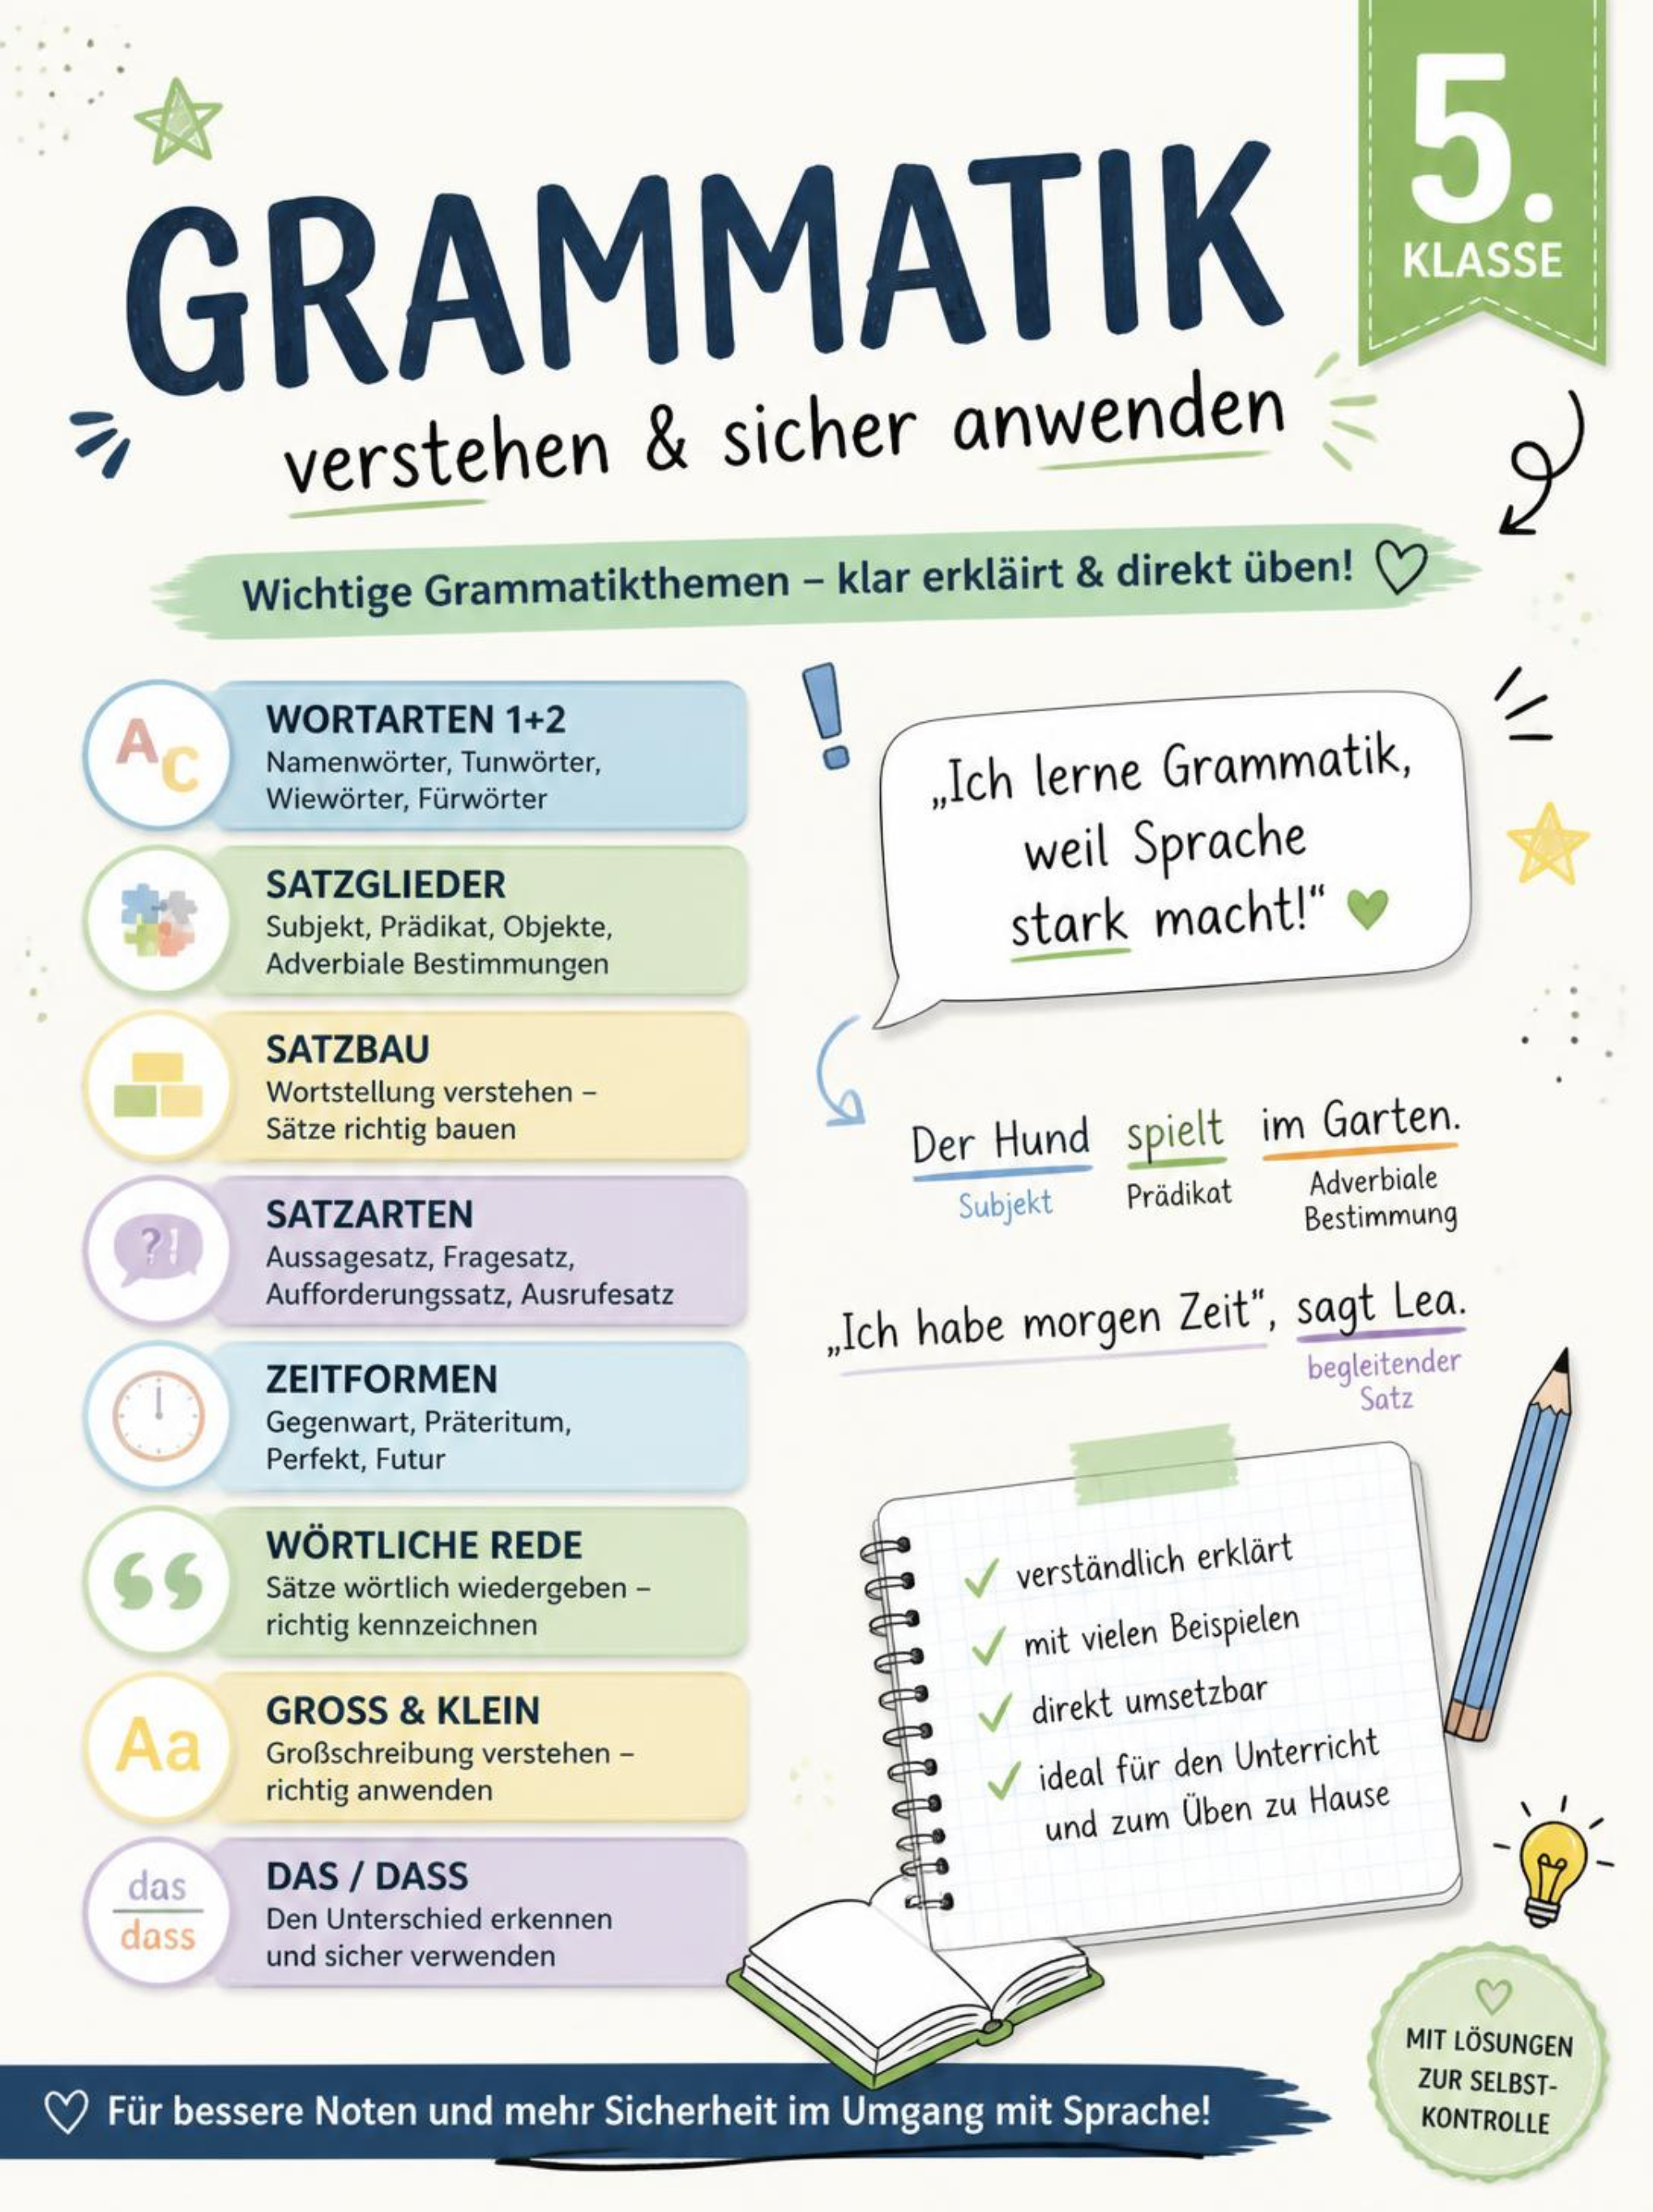 5.
KLASSE
GRAMMATIK
verstehen & sicher anwenden
Wichtige Grammatikthemen – klar erkläirt & direkt üben!
A C
WORTARTEN 1+2
Namenwörter, Tunwörter,
Wiewörter, Fürwörter
SATZGLIEDER
Subjekt, Prädikat, Objekte,
Adverbiale Bestimmungen
SATZBAU
Wortstellung verstehen –
Sätze richtig bauen
?!
SATZARTEN
Aussagesatz, Fragesatz,
Aufforderungssatz, Ausrufesatz
ZEITFORMEN
Gegenwart, Präteritum,
Perfekt, Futur
WÖRTLICHE REDE
Sätze wörtlich wiedergeben –
richtig kennzeichnen
Aa
GROSS & KLEIN
Großschreibung verstehen –
richtig anwenden
das
dass
DAS / DASS
Den Unterschied erkennen
und sicher verwenden
!
„Ich lerne Grammatik,
weil Sprache
stark macht!“
Der Hund spielt im Garten.
Subjekt Prädikat Adverbiale
Bestimmung
„Ich habe morgen Zeit“, sagt Lea.
begleitender
Satz
verständlich erklärt
mit vielen Beispielen
direkt umsetzbar
ideal für den Unterricht
und zum Üben zu Hause
MIT LÖSUNGEN
ZUR SELBST-
KONTROLLE
Für bessere Noten und mehr Sicherheit im Umgang mit Sprache!